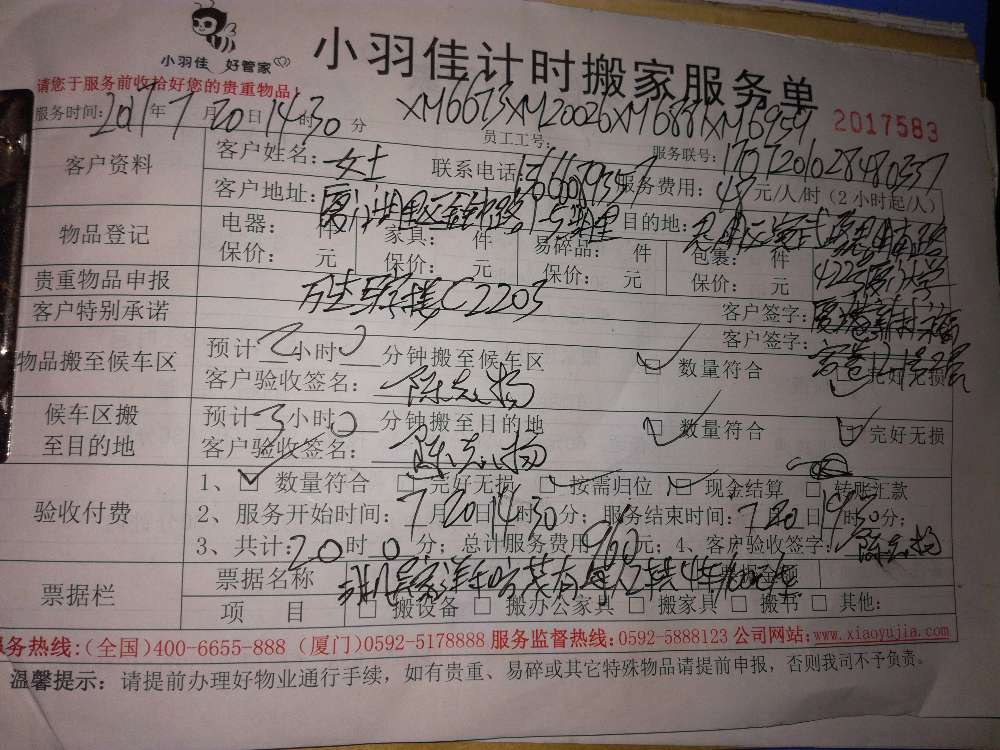 小羽佳 好管家
小羽佳计时搬家服务单
请您于服务前收拾好您的贵重物品!
服务时间: 2017年7月20日14时30分
XM6673XM20026XM6881XM6959
员工工号:
2017583
客户资料
客户姓名: 女士 联系电话: 服务联号: 1707201028480337
服务费用: 48元/人/时(2小时起/人)
客户地址: 厦门湖里区金钟路 目的地: 思明区演武
物品登记
电器: 件 家具: 件 易碎品: 件 包裹: 件
保价: 元 保价: 元 保价: 元 保价: 元
422号厦门大学
贵重物品申报
C2203
客户签字:
客户特别承诺
客户签字:
物品搬至候车区
预计2小时0分钟搬至候车区 □ 数量符合 □ 完好无损
客户验收签名:
候车区搬至目的地
预计3小时0分钟搬至目的地 □ 数量符合 □ 完好无损
客户验收签名:
验收付费
1、□ 数量符合 □ 完好无损 □ 按需归位 □ 现金结算 □ 转账汇款
2、服务开始时间: 7月20日14时30分; 服务结束时间: 7月20日19时30分;
3、共计: 20时0分; 总计服务费用960元; 4、客户验收签字:
票据栏
票据名称 票据金额
项 目 □ 搬设备 □ 搬办公家具 □ 搬家具 □ 搬书 □ 其他:
服务热线:(全国)400-6655-888 (厦门)0592-5178888 服务监督热线:0592-5888123 公司网站:www.xiaoyujia.com
温馨提示: 请提前办理好物业通行手续, 如有贵重、易碎或其它特殊物品请提前申报, 否则我司不予负责。